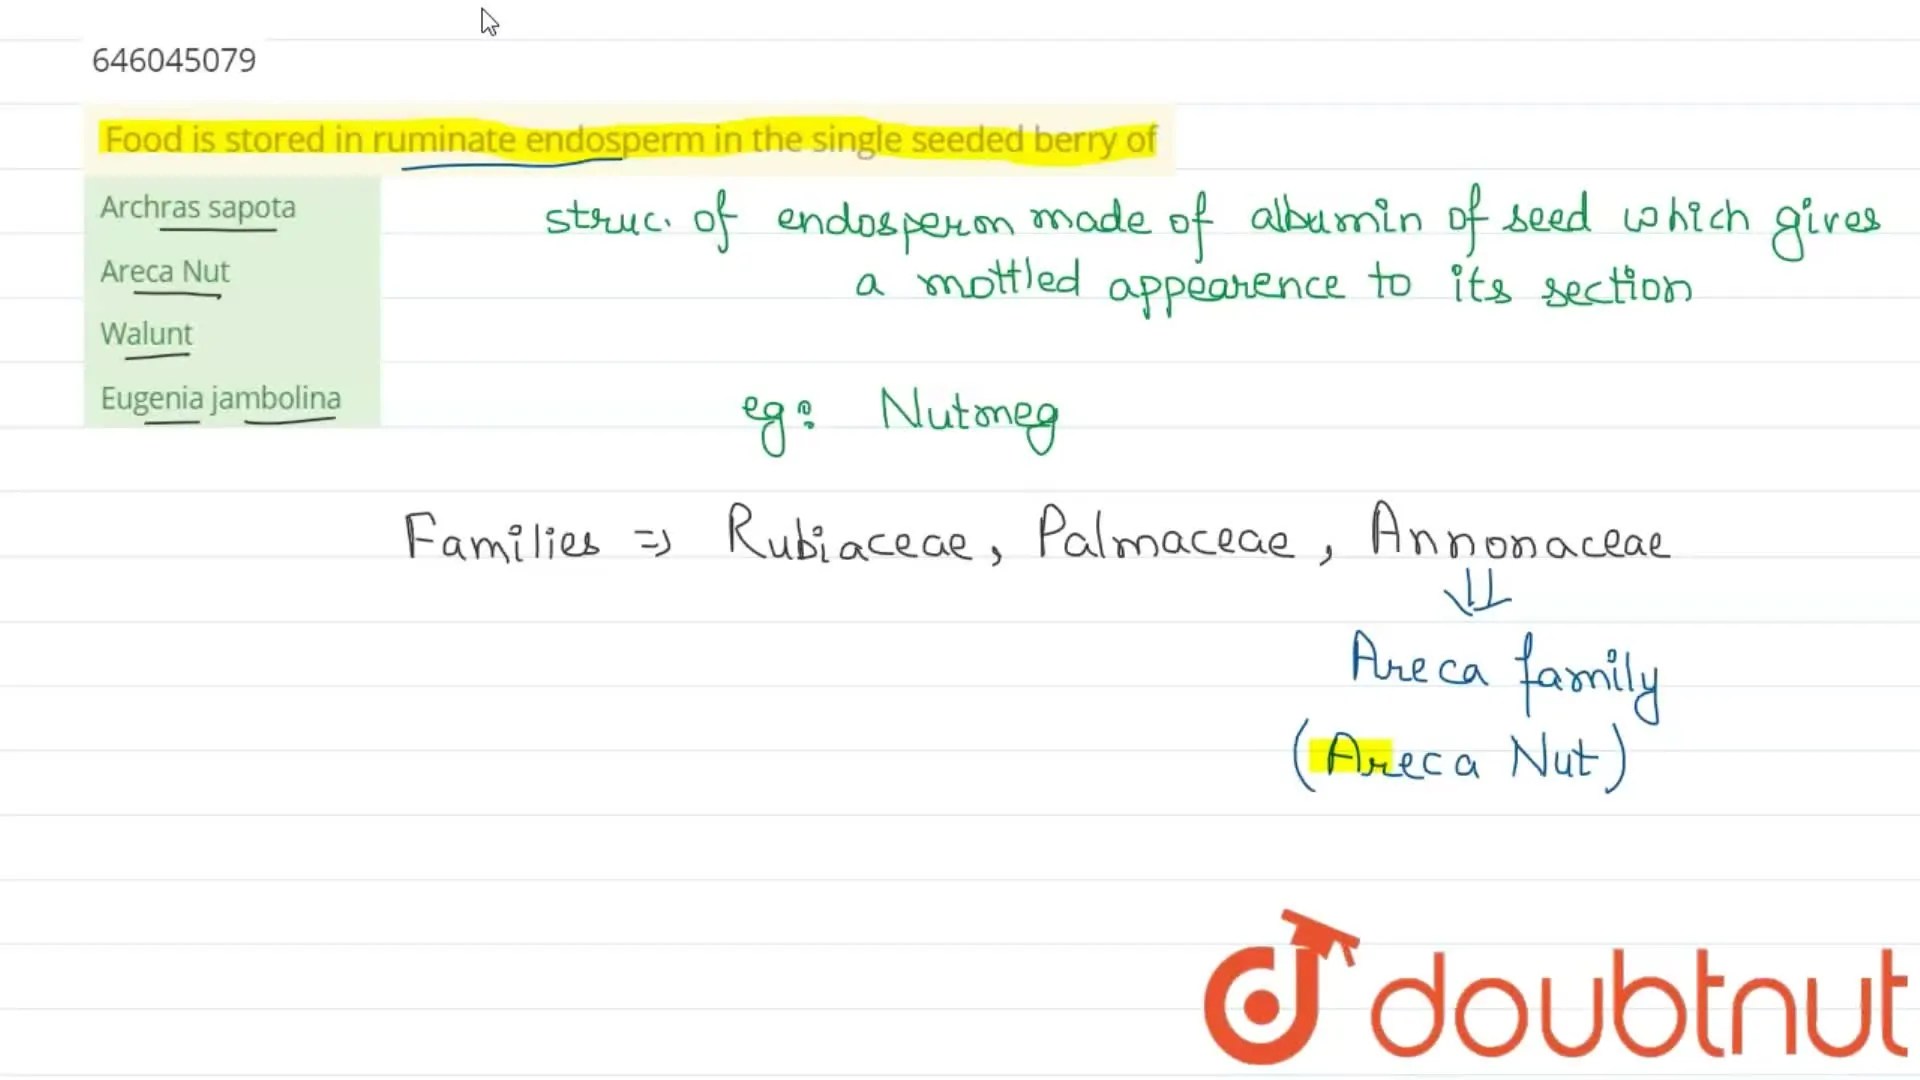 646045079
Food is stored in ruminate endosperm in the single seeded berry of
Archras sapota
Areca Nut
Walunt
Eugenia jambolina
struc. of endosperm made of albumin of seed which gives
a mottled appearence to its section
eg: Nutmeg
Families => Rubiaceae, Palmaceae, Annonaceae
Areca family
(Areca Nut)
doubtnut